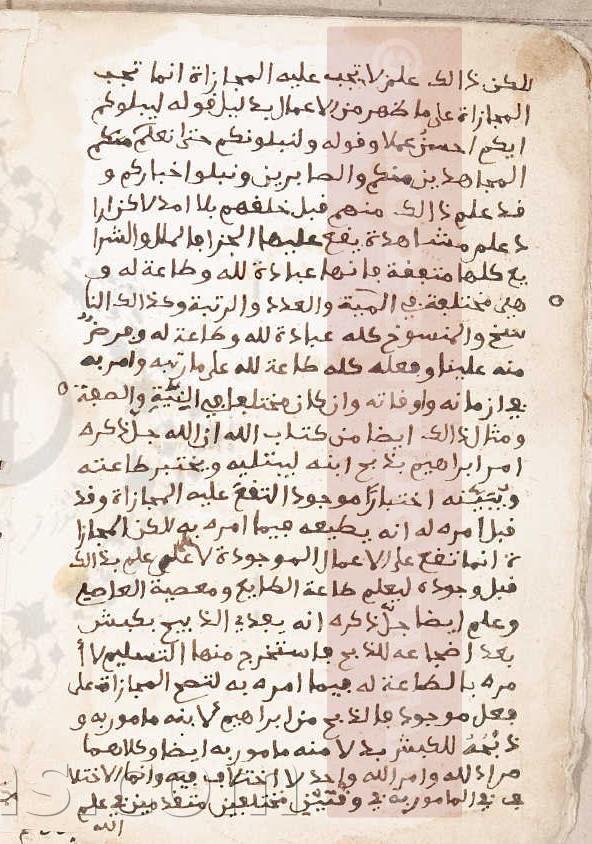 لاكن ذالك علم لا تجب عليه المجازاة انما تجب
المجازاة على ما ظهر من الاعمال بدليل قوله ليبلوكم
ايكم احسن عملا وقوله ولنبلونكم حتى نعلم منكم
المجاهدين منكم والصابرين ونبلوا اخباركم و
قد علم ذالك منهم قبل خلقهم بلا امد لاكن ارا
د علم مشاهدة يقع عليها الجزا فالملل والشرا
يع كلها متفقة فانها عبادة لله وطاعة له و
هي مختلفة في الهيئة والعدد والرتبة وكذالك النا
سخ والمنسوخ كله عبادة لله وطاعة له وفرض
منه علينا وفعله كله طاعة لله على ما رتبه وامر به
في ازمانه واوقاته وان كان مختلفا في النية والصفة
ومثال ذالك ايضا من كتاب الله ان الله جل ذكره
امر ابراهيم بذبح ابنه ليبتليه ويختبر طاعته
ويبينه اختبارا موجودا لتقع عليه المجازاة وقد
قبل امره له انه يطيعه فيما امره به لاكن المجازا
ة انما تقع على الاعمال الموجودة لا على علم بذالك
قبل وجوده ليعلم طاعة الطايع ومعصية العاصي
وعلم ايضا جل ذكره انه يفدي الذبيح بكبش
بعد اضجاعه للذبح فاستخرج منها التسليم لا
مره بالطاعة له فيما امره به لتصح المجازاة على
فعل موجود فالذبح من ابراهيم لابنه مامور به و
ذبحه للكبش بدلا منه مامور به ايضا وكلاهما
مراد لله وامر الله واحد لا اختلاف فيه وانما الاختلا
ف في المامور به في وقتين مختلفين متقدمين في علم
الله